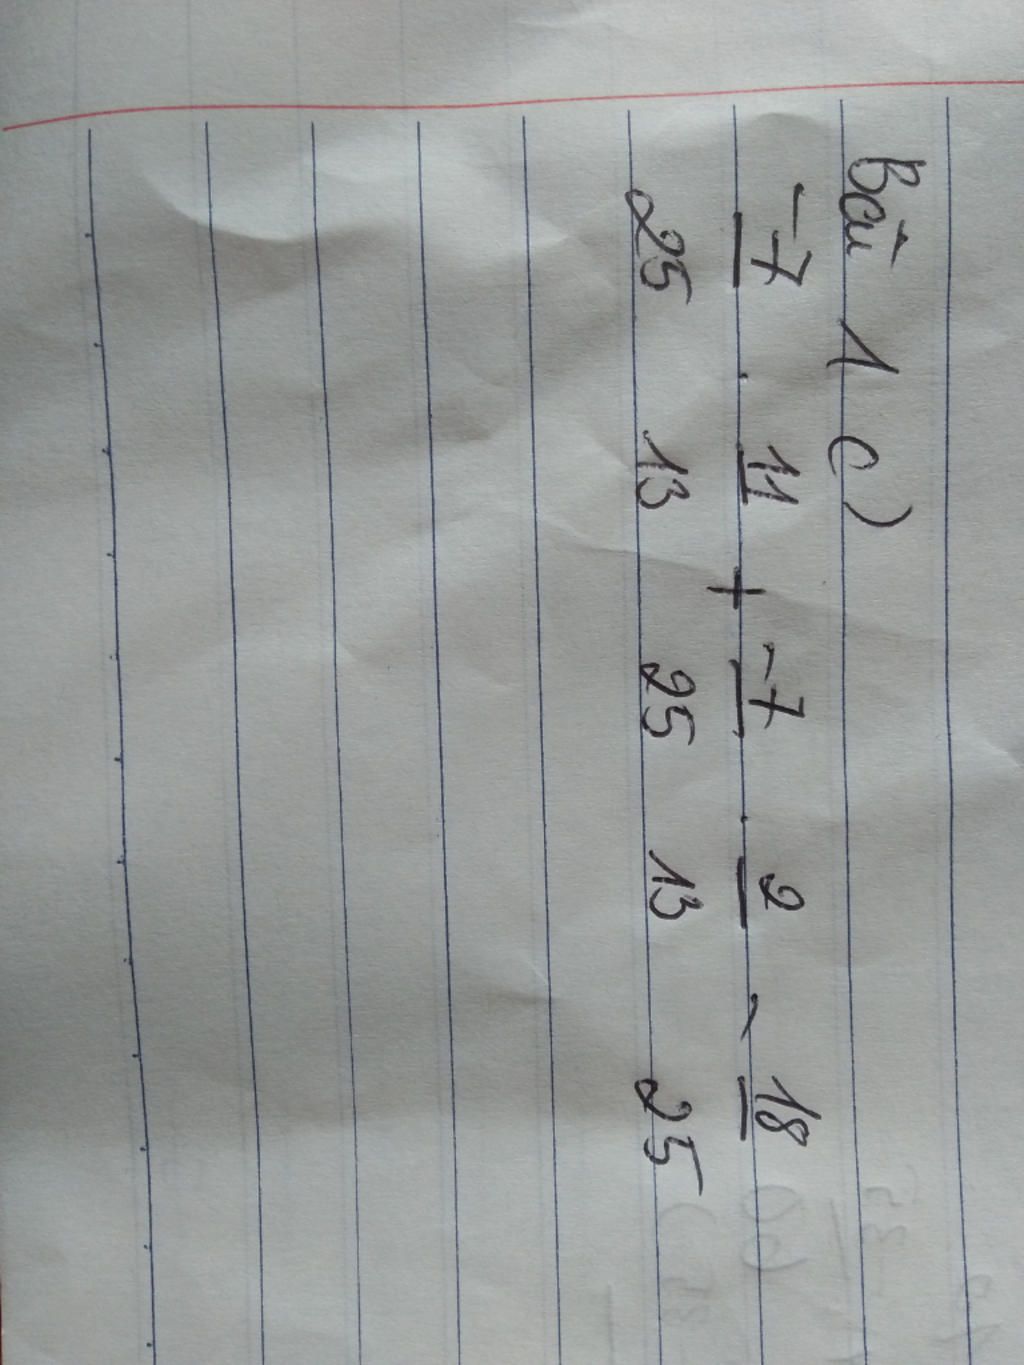 Bài 1 c)
-7/25 . 11/13 + -7/25 . 2/13 - 18/25